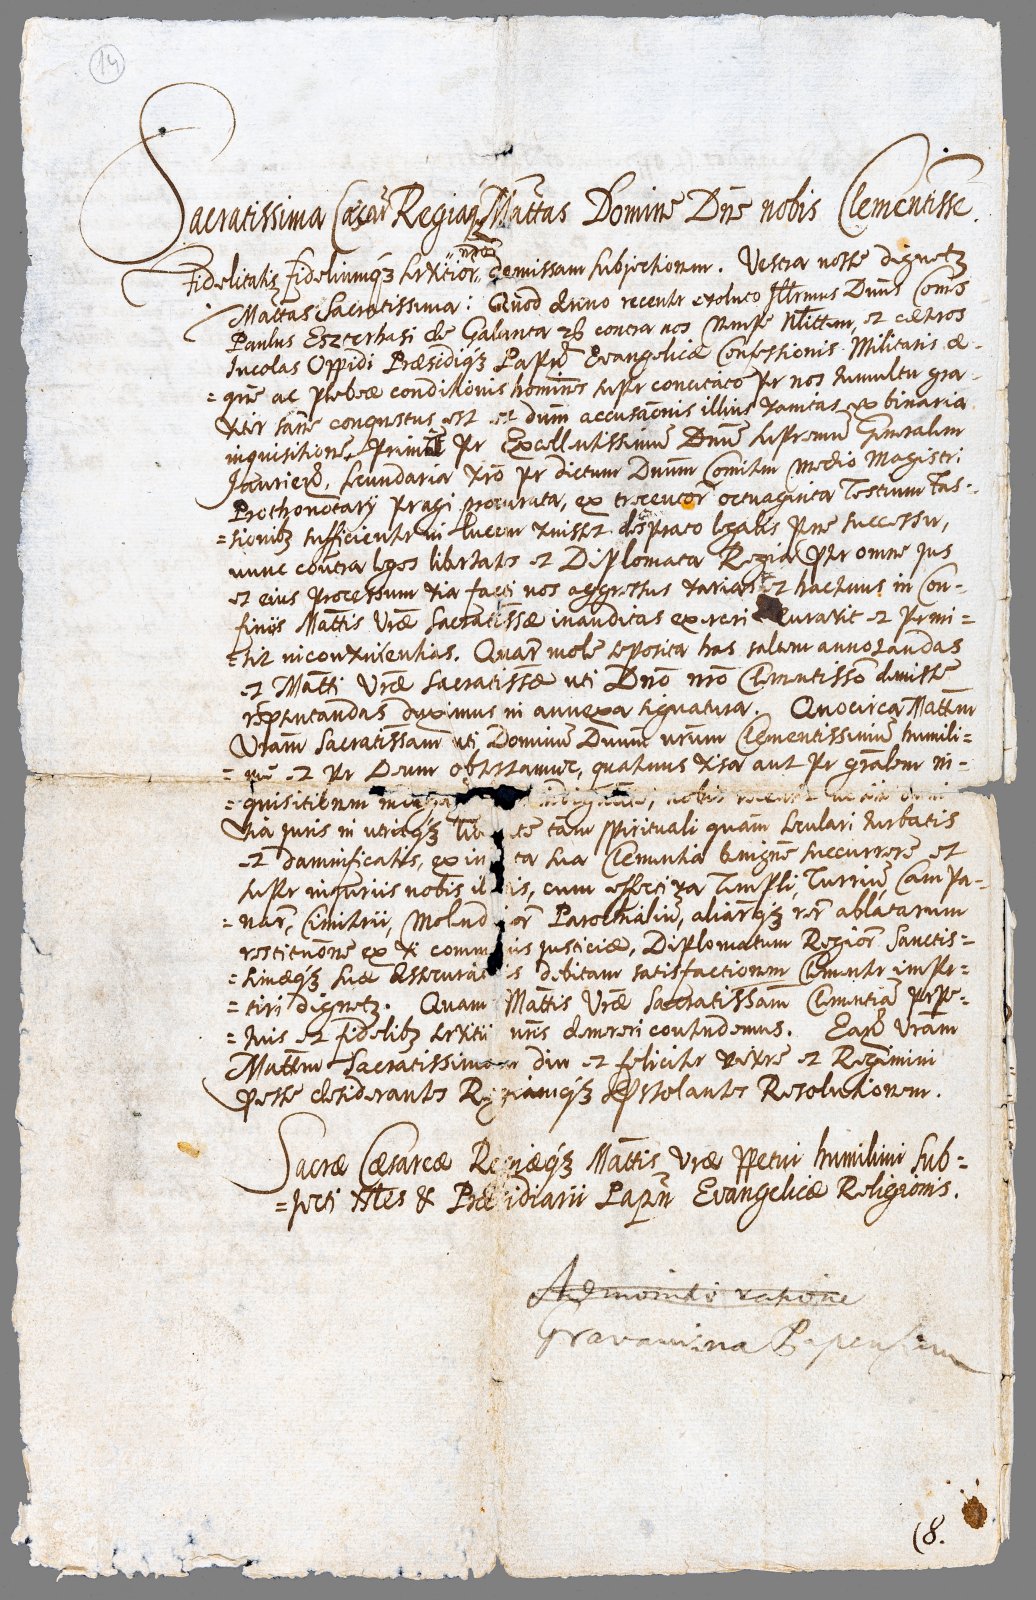 14
Sacratissima Caesar Regiaq́ꝫ Mattas Domine Dne nobis Clementisse.
nror
Fidelitatis fideliumq́ꝫ servitior demissam subjectionem. Vestra nosse dignetꝫ
Mattas Sacratissima: Quod denuo recenter evoluto Illrmus Dnus Comes
Paulus Eszterhasi de Galanta &c contra nos nempe Nlittem, et caetros
Incolas Oppidi Praesidiiq́ꝫ Papen Evangelicae Confessionis Militaris ae-
=que ac plebeae conditionis homines super concitato per nos tumultu gra-
viter sane conquestus est et dum accusaonis illius vanitas ex binaria
inquisitione, prima per Excellentissimum Dnum Supremum Generalem
Jaurien, secundaria vero per dictum Dnum Comitem medio Magistri
Prothonotarij peragi procurata, ex trecentor octuaginta Testium fas-
=sionibꝫ sufficienter in lucem venisset desperato legalis pene successu,
nunc contra leges libertates et Diplomata Regia pter omne jus
et eius processum via facti nos aggressus varias et hactenus in Con-
finiis Mattis Vrae Sacratissae inauditas exerceri curavit et permi=
=sit inconvenientias. Quar mole seposita has saltem annotandas
et Matti Vrae Sacratissae uti Dno nro Clementisso demisse
repsentandas duximus in annexa signatura. Quocirca Mattem
Vram Sacratissam uti Dominum Dnum nrum Clementissimum humili=
=me et per Deum obtestamur, quatenus visa aut per gralem in-
=quisitionem nobis
via juris in utriq́ꝫ tam spirituali quam seculari turbatis
et damnificatis, ex sua Clementia benigne succurrere et
super injuriis nobis cum effectiva Templi, Turrium, Campa-
=nar, Cimiterii, Parochialium, aliarq́ꝫ rer ablatarum
restitutione ex justiciae, Diplomatum Regior Sanctis=
=simaeq́ꝫ suae debitam satisfactionem Clementer imper-
=tiri dignetꝫ. Quam Mattis Vrae Sacratissam Clementiam perpe-
=tuis et fidelibꝫ nris demereri contendemus. Eand Vram
Mattem Sacratissimam diu et feliciter vivere et Regimini
pesse desiderantes Regiamq́ꝫ pstolantes Resolutionem.
Sacrae Caesareae Regiaeq́ꝫ Mattis Vrae ppetui humilimi sub=
=jecti Nles & Praesidiarii Papen Evangelicae Religionis.
Gravamina Papensium
(8.